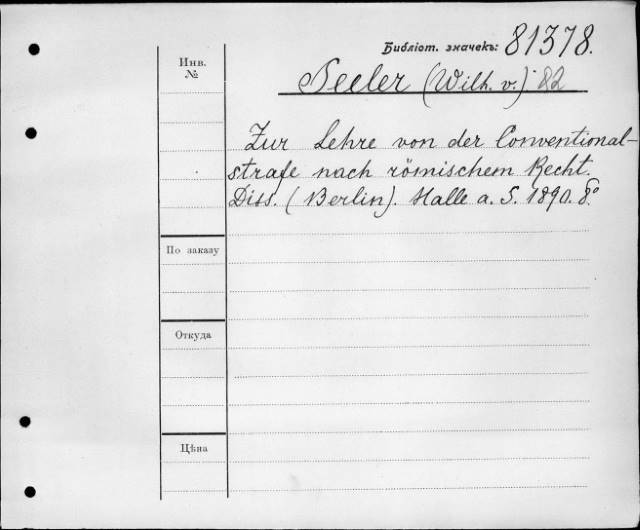 Библіот. значекъ: 81378.
Инв. №
Seeler (Wilh. v.) 82
Zur Lehre von der Conventional-
strafe nach römischem Recht.
Diss. (Berlin). Halle a. S. 1890. 8°
По заказу
Откуда
Цѣна